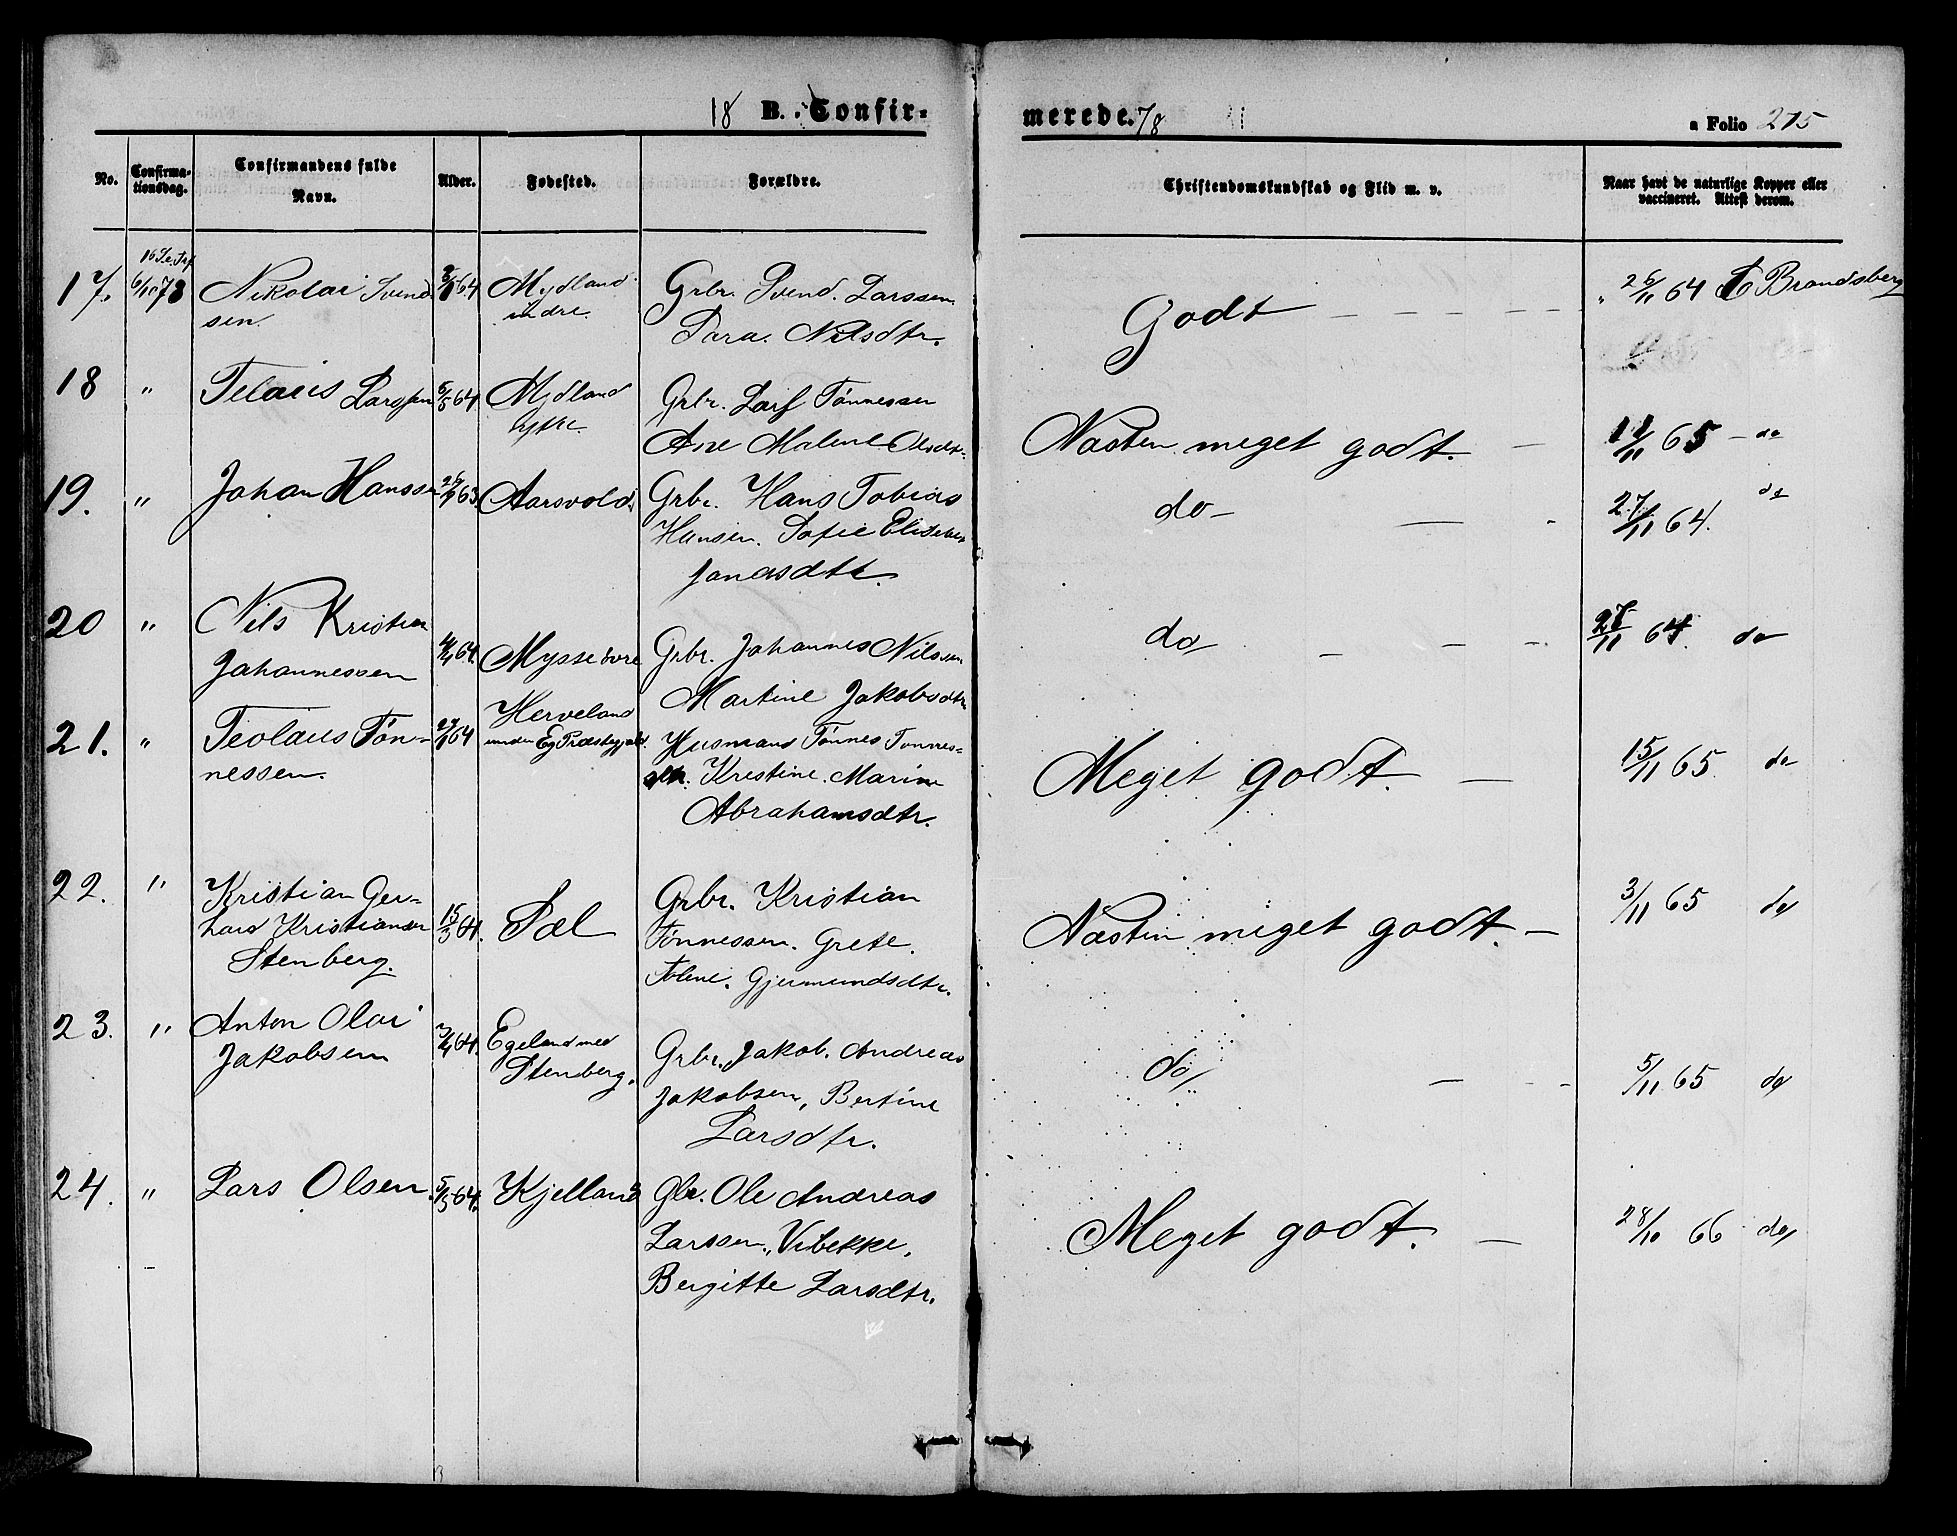 18 B. Confirmerede. 78
a Folio 215
No. Confirmationsdag. Confirmandens fulde Navn. Alder. Fødested. Forældre. Christendomskundskab og Flid m. v. Naar havt de naturlige Kopper eller vaccineret. Attest derom.
17. 6/10 78 Nikolai Svend- 64 Mydland Grbr. Svend Larssen Godt 26/11 64 Brandsberg
sen. indre. Sara. Nilsdtr.
18 " Larssen 5/5 64 Mydland Grbr. Tønnessen Næsten meget godt. 11/11 65 do
Ane Malene Olsdtr.
19. " Johan Hanssen 63. Aarsvold Grbr. Hans Tobias do 27/11 64. do
Hansen. Sofie
Jonasdtr.
20 " Nils Kristian do 27/11 64. do
Johannessen 64. Mysse Grbr. Johannes Nilssen
Martine Jakobsdtr.
21. " Teolaus Tøn- 64 Herveland Husmand Tønnes Tønnes- Meget godt. 15/11 65. do
nessen. under Eg Præstegjæld. sen. Kristine. Marine
Abrahamsdtr.
22. " Kristian Ger- 15/3 64. Sæl Grbr. Kristian Næsten meget godt. 3/11 65 do
hard Kristiansen Tønnessen. Grete.
Stenberg. Tolene. Gjermundsdtr.
23. " Anton Olai 64. Egeland med Grbr. Jakob. Andreas do 5/11 65 do
Jakobsen Stenberg. Jakobsen, Bertine
Larsdtr.
24. " Lars Olsen. 5/5 64. Kjelland Gbr. Ole Andreas Meget godt. 28/10 66 do
Larssen, Vibekke,
Bergitte Larsdtr.